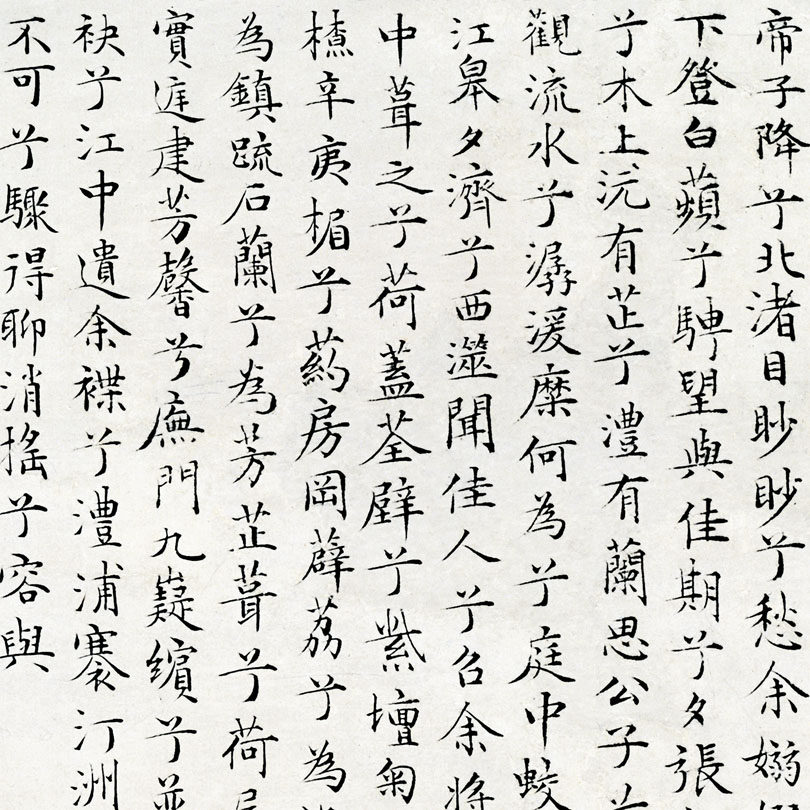 帝子降兮北渚目眇眇兮愁余嫋
下登白蘋兮騁望與佳期兮夕張
兮木上沅有芷兮澧有蘭思公子
觀流水兮潺湲糜何為兮庭中蛟
江皋夕濟兮西澨聞佳人兮召余將
中葺之兮荷蓋荃壁兮紫壇匊
橑辛夷楣兮葯房罔薜荔兮為
為鎮疏石蘭兮為芳芷葺兮荷
實庭建芳馨兮廡門九嶷繽兮並
袂兮江中遺余褋兮澧浦搴汀洲
不可兮驟得聊消搖兮容與